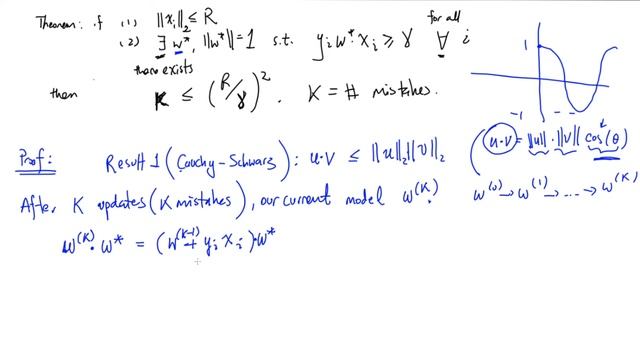 Theorem: if (1) ‖xᵢ‖₂ ≤ R
(2) ∃ w*, ‖w*‖=1 s.t. yᵢ w*·xᵢ ≥ γ ∀ i
for all
there exists
then K ≤ (R/γ)². K = # mistakes.
1
-1
u·v = ‖u‖·‖v‖ cos(θ)
Proof: Result 1 (Cauchy-Schwarz): u·v ≤ ‖u‖₂‖v‖₂
After K updates (K mistakes), our current model w⁽ᴷ⁾.
w⁽⁰⁾ → w⁽¹⁾ → ... → w⁽ᴷ⁾
w⁽ᴷ⁾·w* = (w⁽ᴷ⁻¹⁾ + yᵢxᵢ)·w*